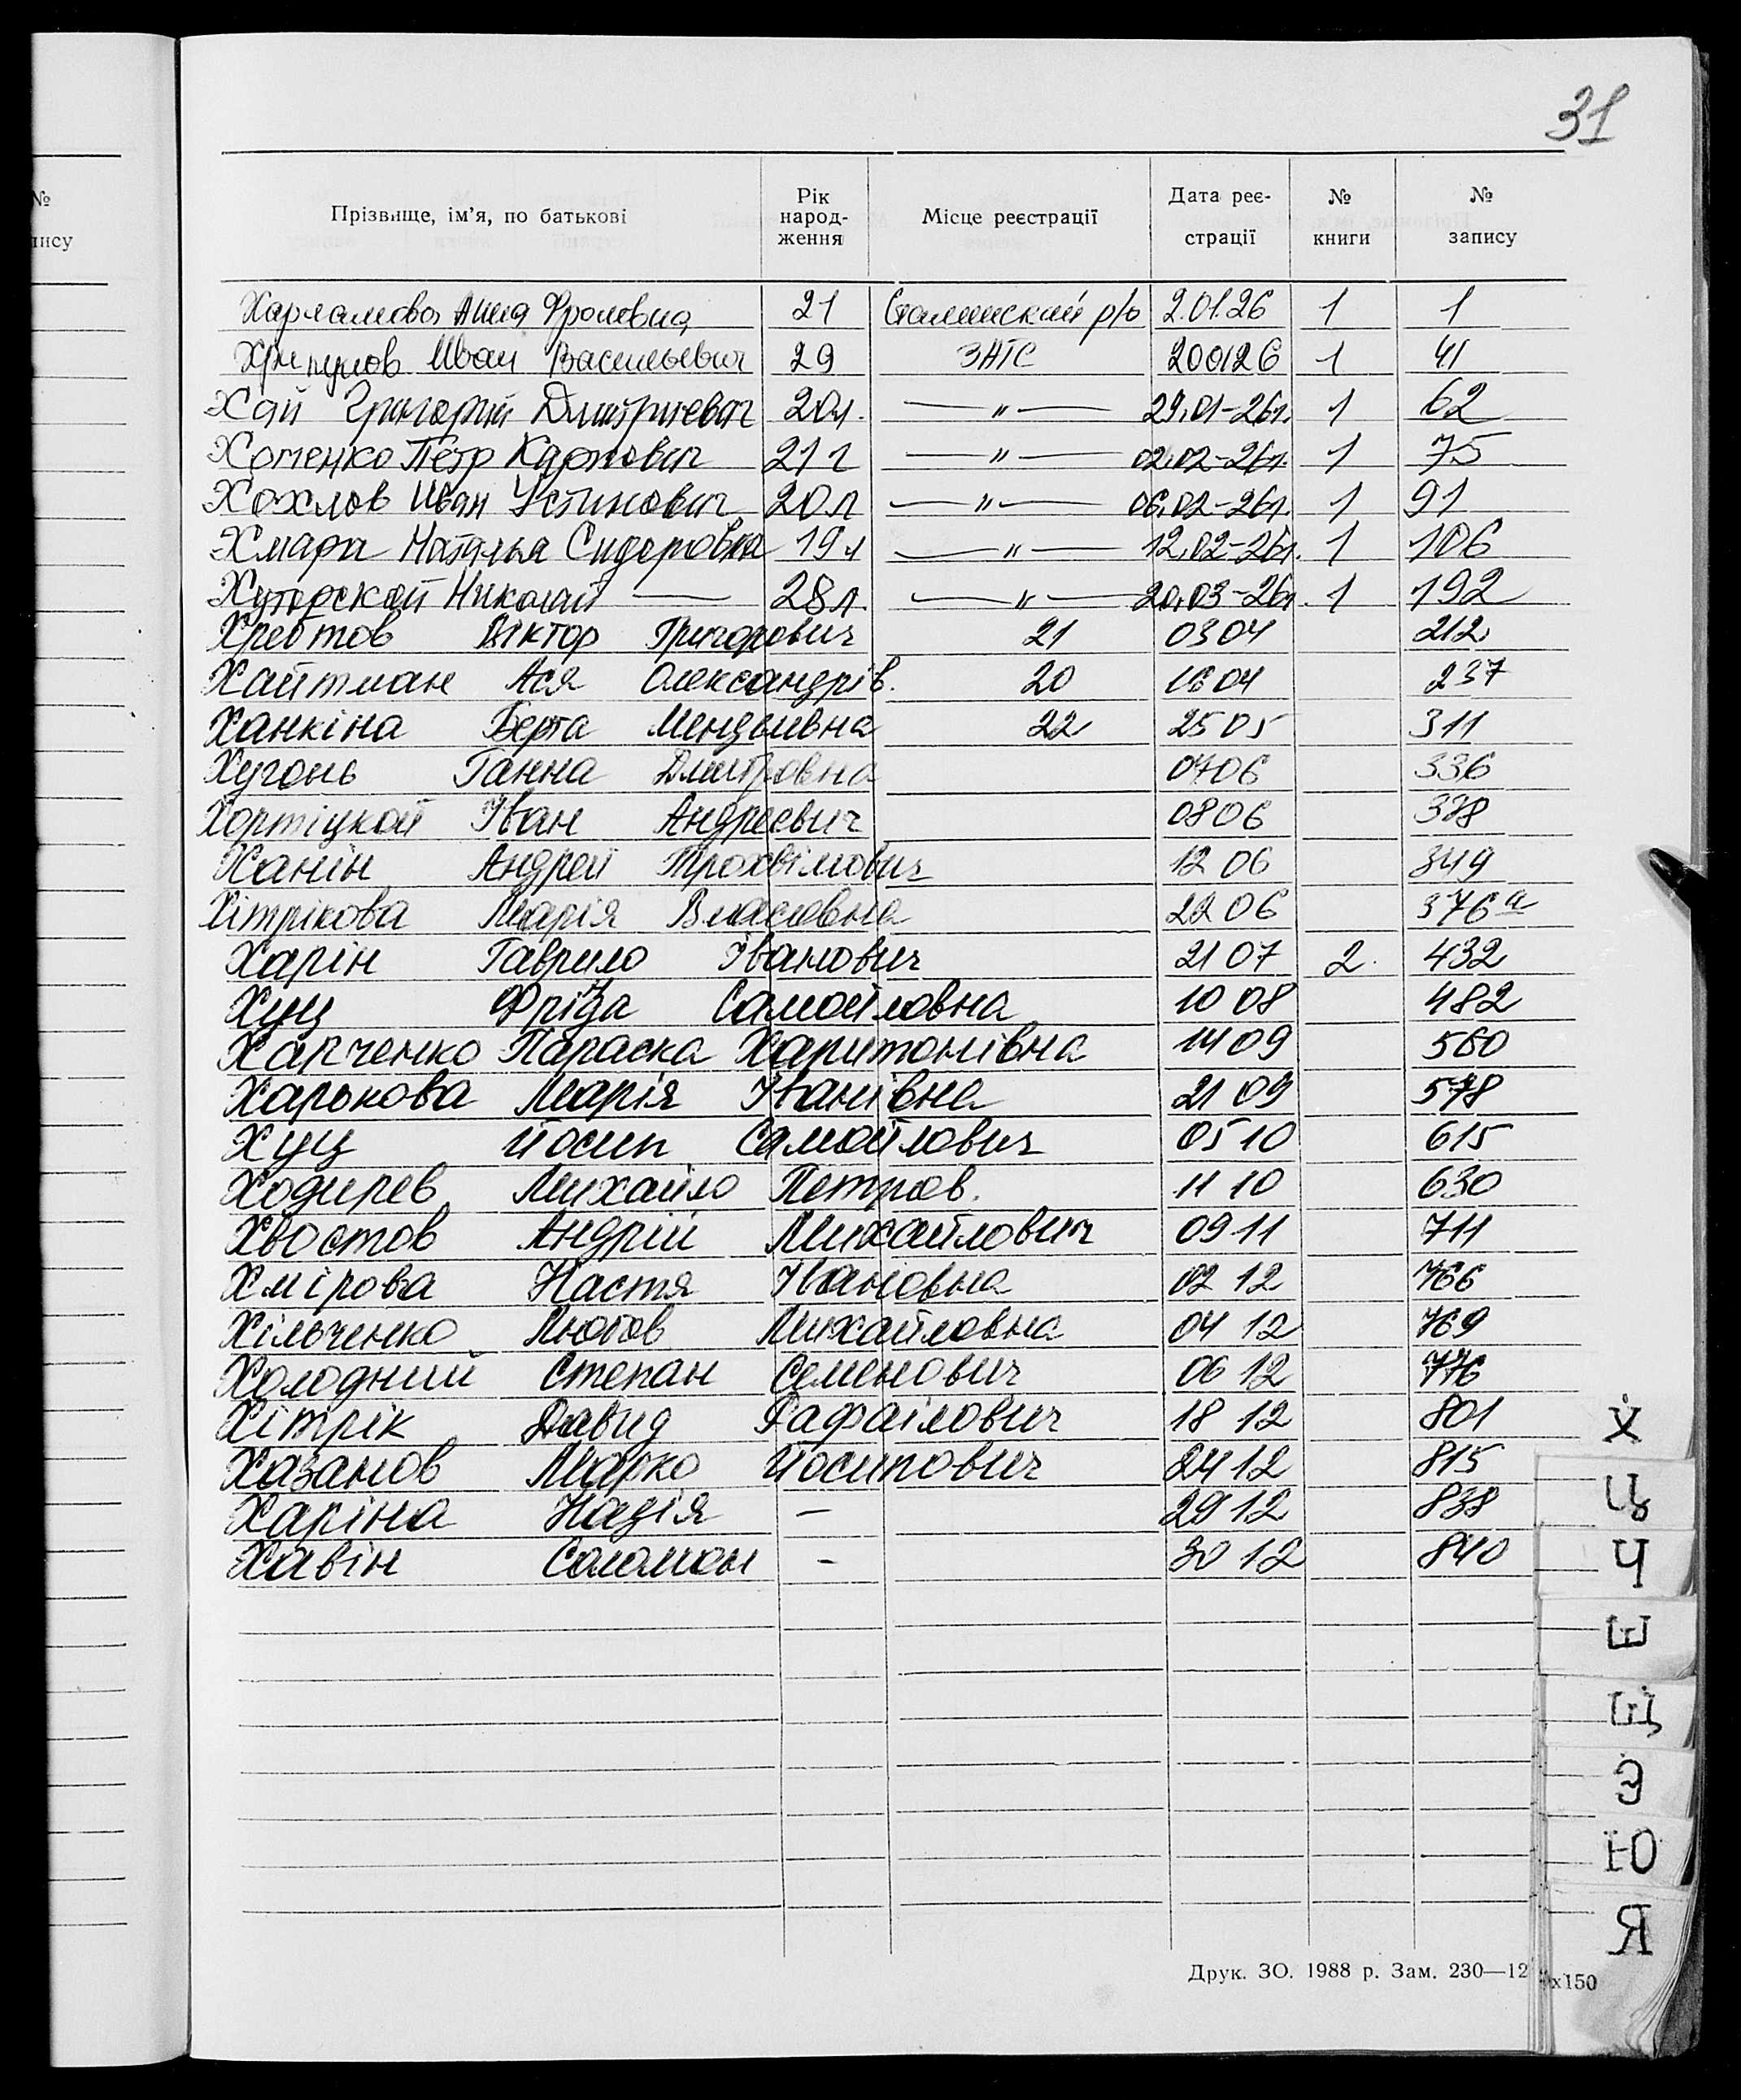 31
№
пису
Прізвище, ім’я, по батькові Рік народ-ження Місце реєстрації Дата реє-страції № книги № запису
Харламова Анна Фроловна 21 Сталинский р/о 2.01.26 1 1
Хрипунов Иван Васильевич 29 ЗАГС 200126 1 41
Хай Григорий Дмитриевич 20л. —"— 29.01-26г. 1 62
Хоменко Пётр Карпович 21г —"— 02.02-26г. 1 75
Хохлов Иван Устинович 20л —"— 06.02-26г. 1 91
Хмара Наталья Сидоровна 19л —"— 12.02-26г. 1 106
Хуторской Николай — 28л. —"— 20.03-26г. 1 192
Хребтов Віктор Григорович 21 0304 212
Хайтман Ася Олександрів. 20 1604 237
Ханкіна Берта Мендылевна 22 2505 311
Хугонь Ганна Дмитровна 0706 336
Хортіцкой Іван Андреевич 0806 338
Ханін Андрей Трохвімович 12 06 349
Хітрікова Марія Власовна 22 06 376а
Харін Гаврило Іванович 21 07 2. 432
Хуц Фріда Самойловна 10 08 482
Харченко Параска Харитонівна 14 09 560
Харькова Марія Іванівна 21 09 578
Хуц Йосип Самойлович 05 10 615
Ходирев Михайло Петров. 11 10 630
Хвостов Андрій Михайлович 09 11 711
Хмірова Настя Івановна 02 12 766
Хільченко Любов Михайловна 04 12 769
Холодний Степан Семенович 06 12 776
Хітрік Давид Рафаілович 18 12 801
Хазанов Марко Йосипович 24 12 815
Харіна Надія – 29 12 838
Хавін Соломон – 30 12 840
Х
Ц
Ч
Ш
Щ
Э
Ю
Я
Друк. ЗО. 1988 р. Зам. 230—12 х150